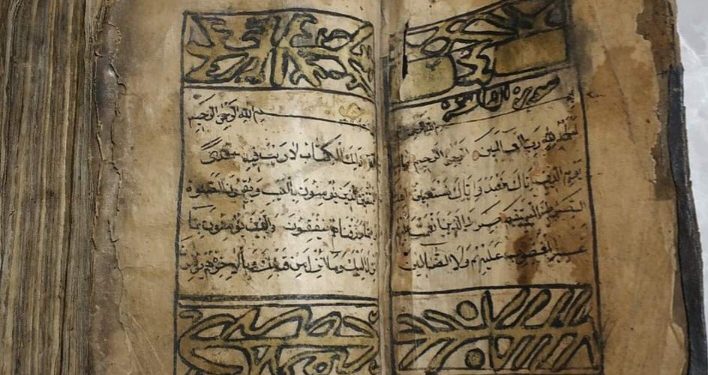 سورة
بسم الله
الحمد لله رب العالمين الرحمن الرحيم
يوم الدين اياك نعبد واياك نستعين
الصراط المستقيم صراط الذين انعمت عليهم
غير المغضوب عليهم ولا الضالين
بسم الله الرحمن الرحيم
ذلك الكتاب لا ريب فيه هدى
للمتقين الذين يؤمنون بالغيب ويقيمون الصلوة
ومما رزقناهم ينفقون والذين يؤمنون بما
انزل اليك وما انزل من قبلك وبالاخرة هم